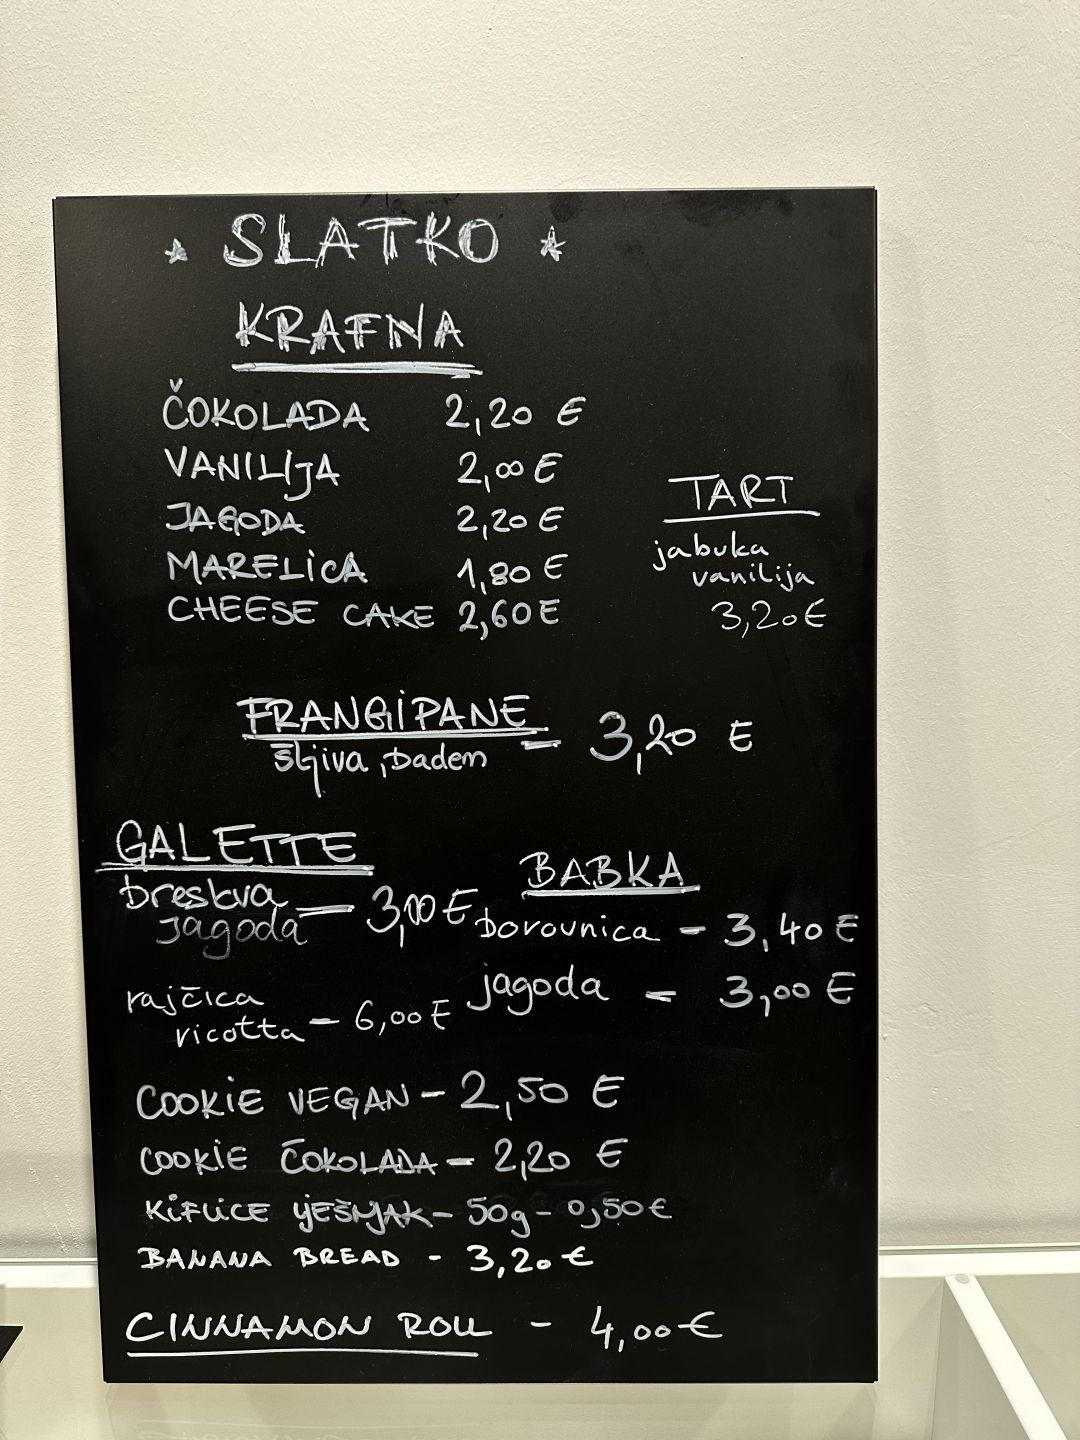 * SLATKO *
KRAFNA
ČOKOLADA 2,20 €
VANILIJA 2,00 €
JAGODA 2,20 €
MARELICA 1,80 €
CHEESE CAKE 2,60 €
TART
jabuka
vanilija
3,20 €
FRANGIPANE – 3,20 €
šljiva, badem
GALETTE
breskva
jagoda – 3,00 €
rajčica
ricotta – 6,00 €
BABKA
borovnica – 3,40 €
jagoda – 3,00 €
COOKIE VEGAN – 2,50 €
COOKIE ČOKOLADA – 2,20 €
KIFLICE LJEŠNJAK – 50g – 0,50 €
BANANA BREAD - 3,20 €
CINNAMON ROLL - 4,00 €